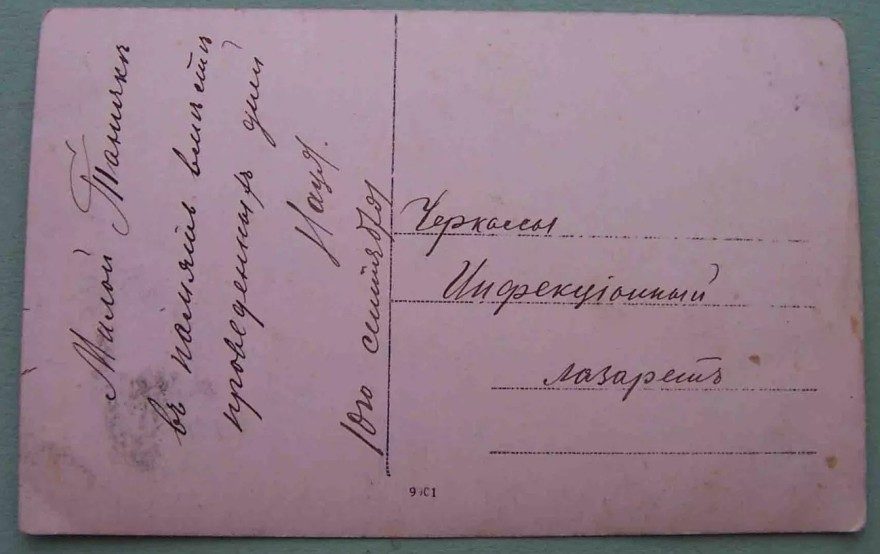 Милой Таничкѣ
въ память вмѣстѣ
проведенныхъ дни
10го сентября
Черкассы
Инфекціонный
лазаретъ